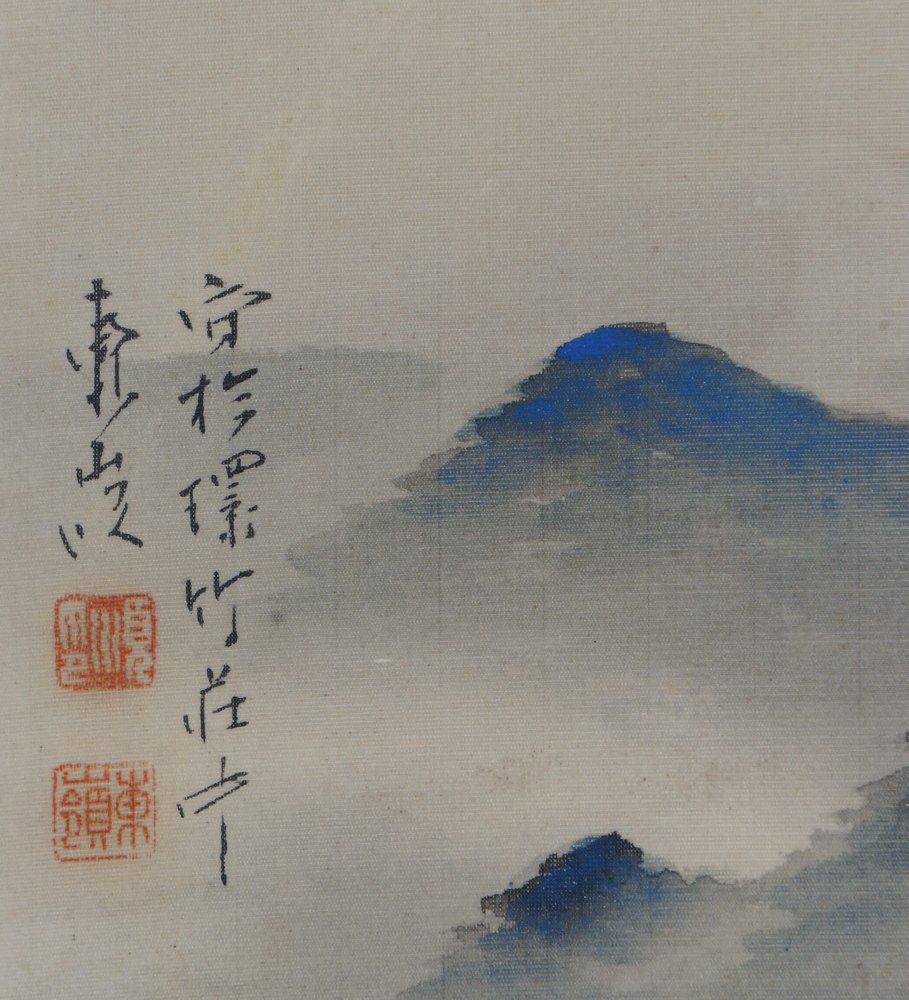 寫於環竹荘中
東嶺
東嶺